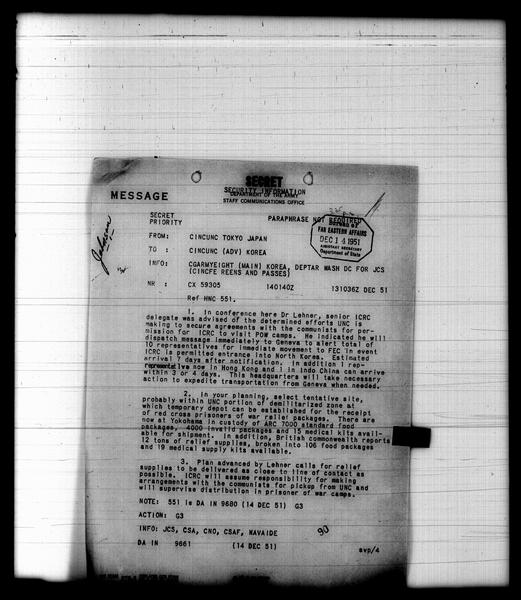 SECRET
SECURITY INFORMATION
MESSAGE
DEPARTMENT OF THE ARMY
STAFF COMMUNICATIONS OFFICE
SECRET
PRIORITY
PARAPHRASE NOT REQUIRED
BUREAU OF
FAR EASTERN AFFAIRS
DEC 14 1951
ASSISTANT SECRETARY
Department of State
Johnson
FROM: CINCUNC TOKYO JAPAN
TO : CINCUNC (ADV) KOREA
INFO: CGARMYEIGHT (MAIN) KOREA, DEPTAR WASH DC FOR JCS
(CINCFE REENS AND PASSES)
NR : CX 59305 140140Z 131036Z DEC 51
Ref HNC 551.
1. In conference here Dr Lehner, senior ICRC
delegate was advised of the determined efforts UNC is
making to secure agreements with the communists for per-
mission for ICRC to visit POW camps. He indicated he will
dispatch message immediately to Geneva to alert total of
10 representatives for immediate movement to FEC in event
ICRC is permitted entrance into North Korea. Estimated
arrival 7 days after notification. In addition 1 rep-
representative now in Hong Kong and 1 in Indo China can arrive
within 3 or 4 days. This headquarters will take necessary
action to expedite transportation from Geneva when needed.
2. In your planning, select tentative site,
probably within UNC portion of demilitarized zone at
which temporary depot can be established for the receipt
of red cross prisoners of war relief packages. There are
now at Yokohama in custody of ARC 7000 standard food
packages, 4000 invalid packages and 15 medical kits avail-
able for shipment. In addition, British commonwealth reports
12 tons of relief supplies, broken into 106 food packages
and 19 medical supply kits available.
3. Plan advanced by Lehner calls for relief
supplies to be delivered as close to line of contact as
possible. ICRC will assume responsibility for making
arrangements with the communists for pickup from UNC and
will supervise distribution in prisoner of war camps.
NOTE: 551 is DA IN 9680 (14 DEC 51) G3
ACTION: G3
INFO: JCS, CSA, CNO, CSAF, NAVAIDE
90
DA IN 9661 (14 DEC 51) svp/4